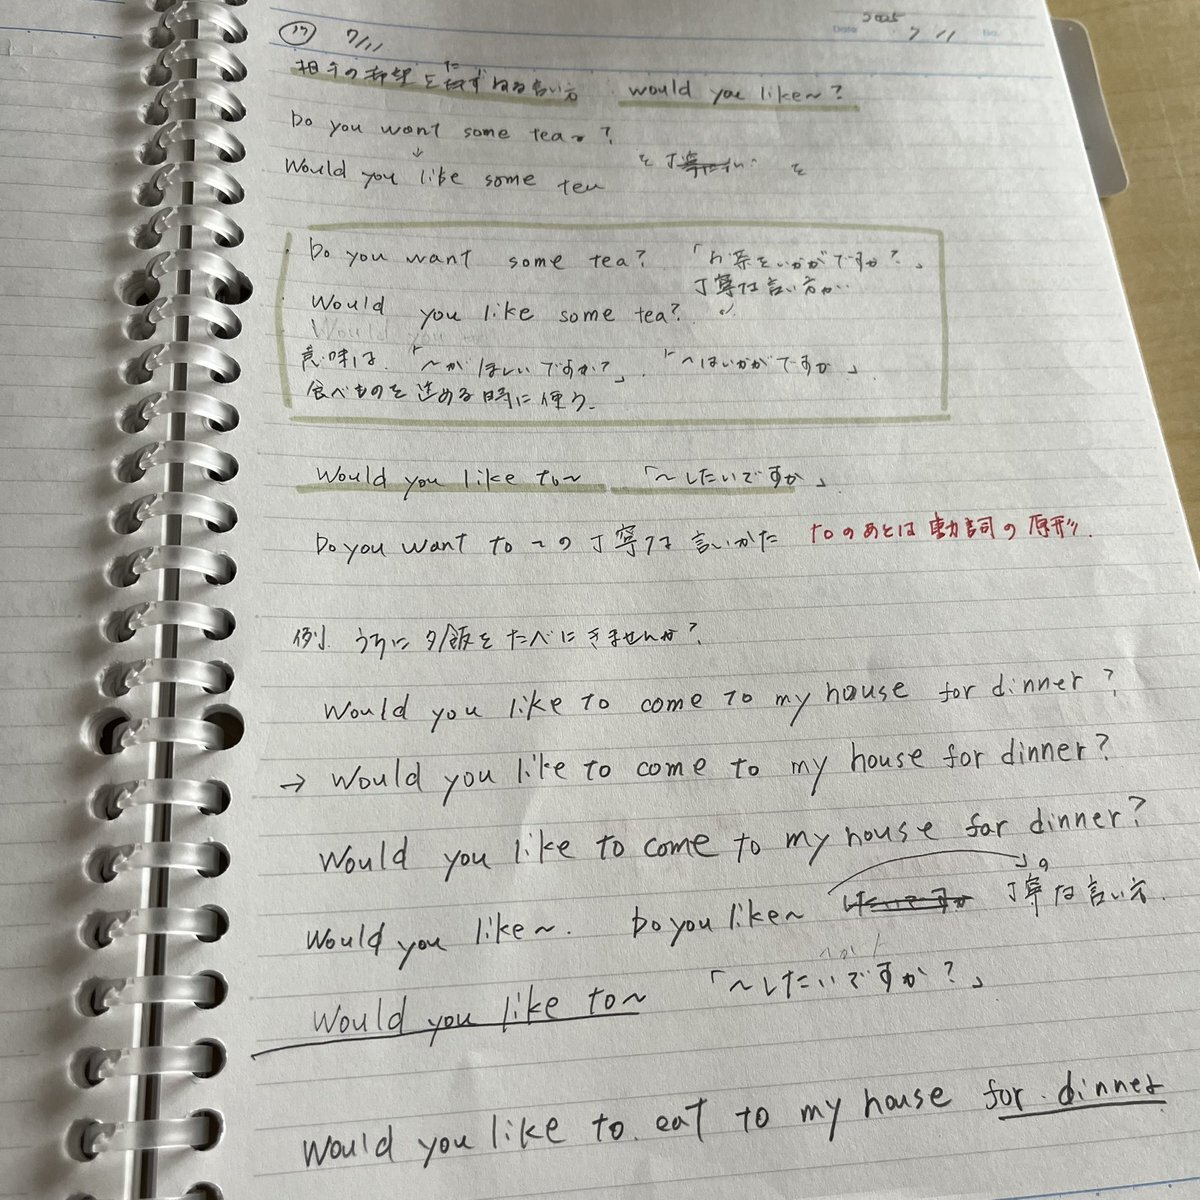 2025
Date 7 11 No.
7/11
相手の希望をたずねる言い方 would you like～?
Do you want some tea～?
Would you like some tea
Do you want some tea? 「お茶をいかがですか?」
丁寧な言い方が
Would you like some tea?
Would you
意味は、「～がほしいですか?」「～はいかがですか」
食べものを進める時に使う。
Would you like to～ 「～したいですか」
Do you want to～の丁寧な言いかた toのあとは動詞の原形。
例. うちに夕飯をたべにきませんか?
Would you like to come to my house for dinner?
→ Would you like to come to my house for dinner?
Would you like to come to my house for dinner?
Would you like～. Do you like～ の丁寧な言い方.
Would you like to～ 「～したいですか?」
Would you like to eat to my house for dinner